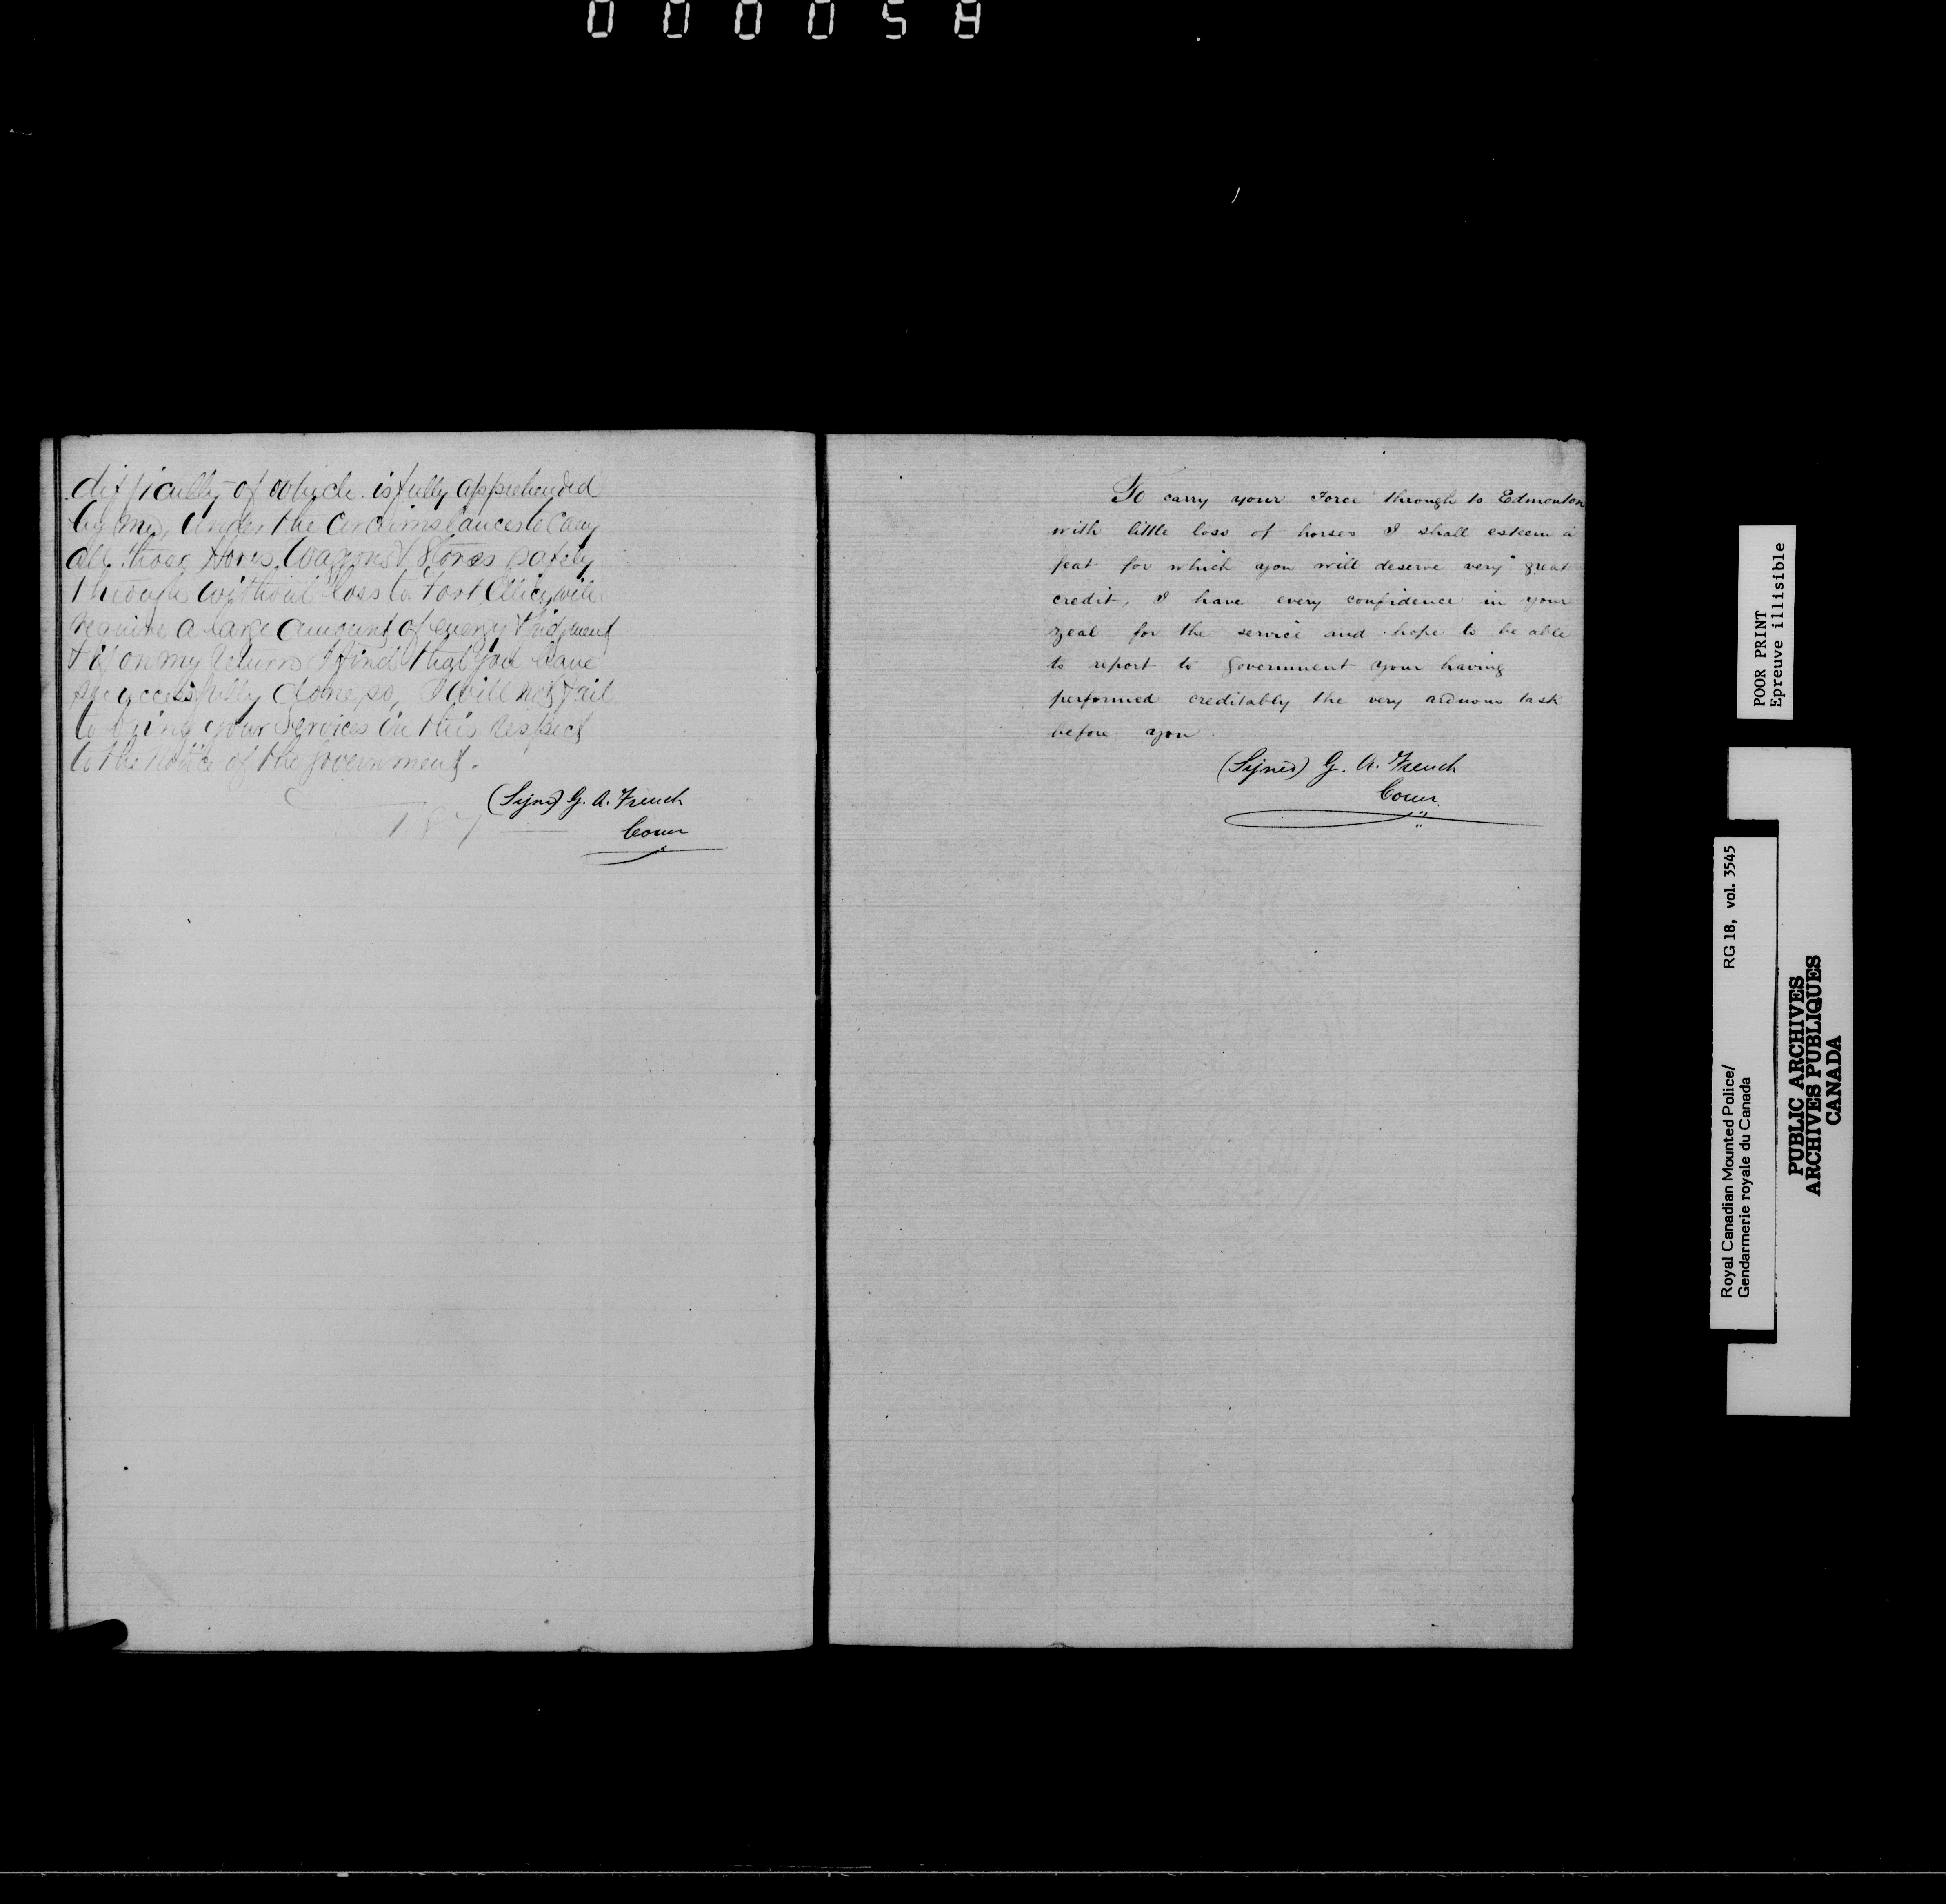 000058
difficulty of which is fully apprehended
by me, under the circumstances to carry
all those Horses, Waggons & Stores safely
through without loss to Fort Ellice, will
require a large amount of energy & judgment
& if on my return I find that you have
successfully done so, I will not fail
to bring your services in this respect
to the notice of the Government.
(Signd) G. A. French
Comr
187
To carry your Force through to Edmonton
with little loss of horses I shall esteem a
feat for which you will deserve very great
credit, I have every confidence in your
zeal for the service and hope to be able
to report to Government your having
performed creditably the very arduous task
before you.
(Signed) G. A. French
Comr.
POOR PRINT
Epreuve illisible
Royal Canadian Mounted Police/ RG 18, vol. 3545
Gendarmerie royale du Canada
PUBLIC ARCHIVES
ARCHIVES PUBLIQUES
CANADA